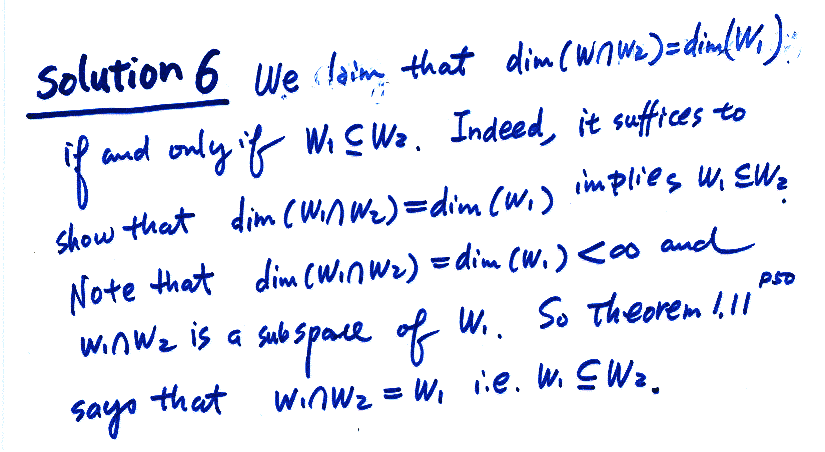 Solution 6 We claim that dim(W∩W₂)=dim(W₁)
if and only if W₁⊆W₂. Indeed, it suffices to
show that dim(W₁∩W₂)=dim(W₁) implies W₁⊆W₂.
Note that dim(W₁∩W₂)=dim(W₁)<∞ and
W₁∩W₂ is a subspace of W₁. So Theorem 1.11 P50
says that W₁∩W₂=W₁ i.e. W₁⊆W₂.